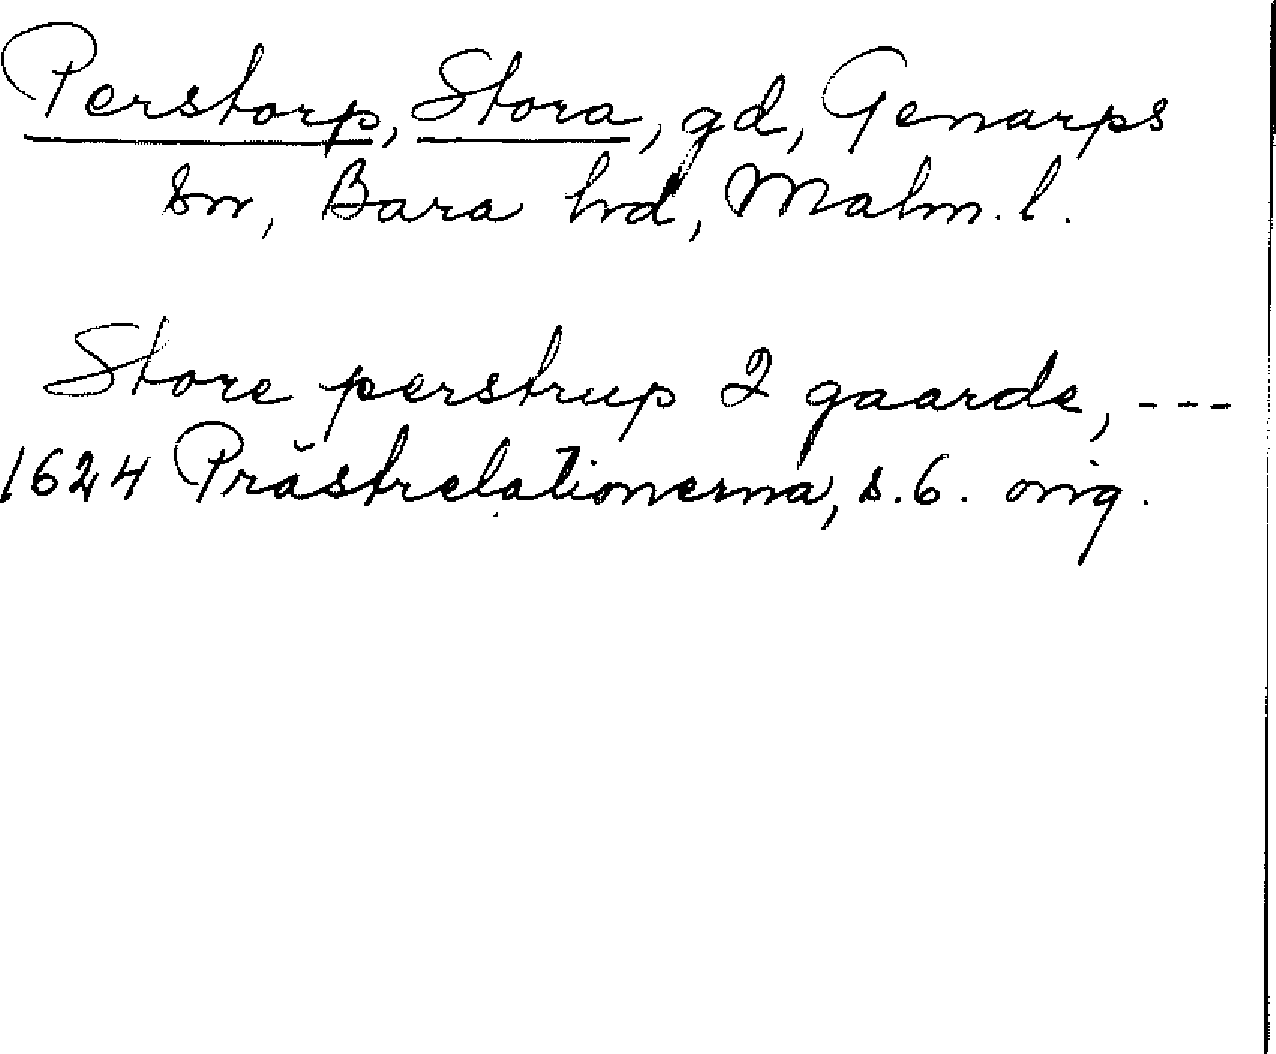 Perstorp, Stora, gd, Genarps
sn, Bara hd, Malm. l.
Store perstrup 2 gaarde, ---
1624 Prästrelationerna, s. 6. orig.